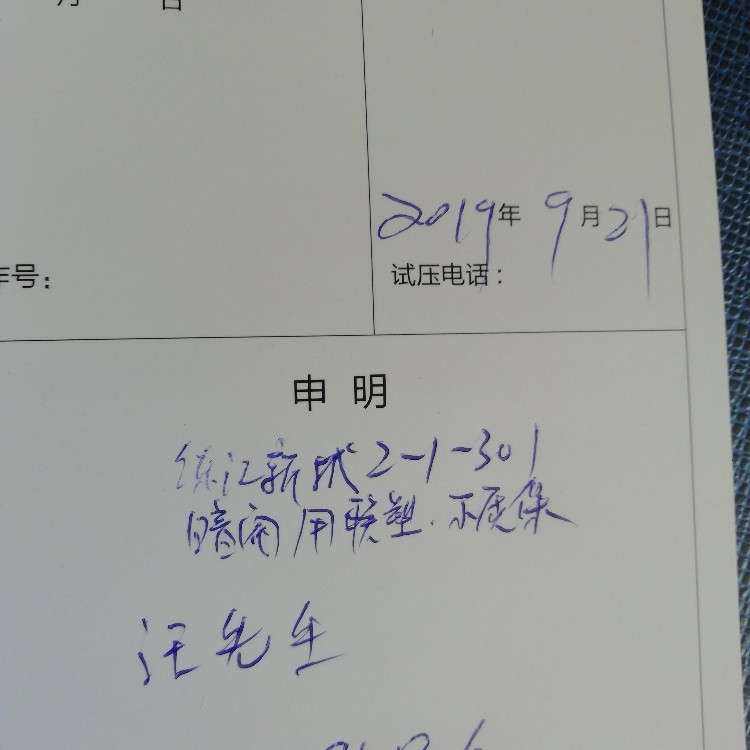 月 日
2019年 9月21日
号：
试压电话：
申明
练江新城2-1-301
暗阀用联塑.不质保
汪先生